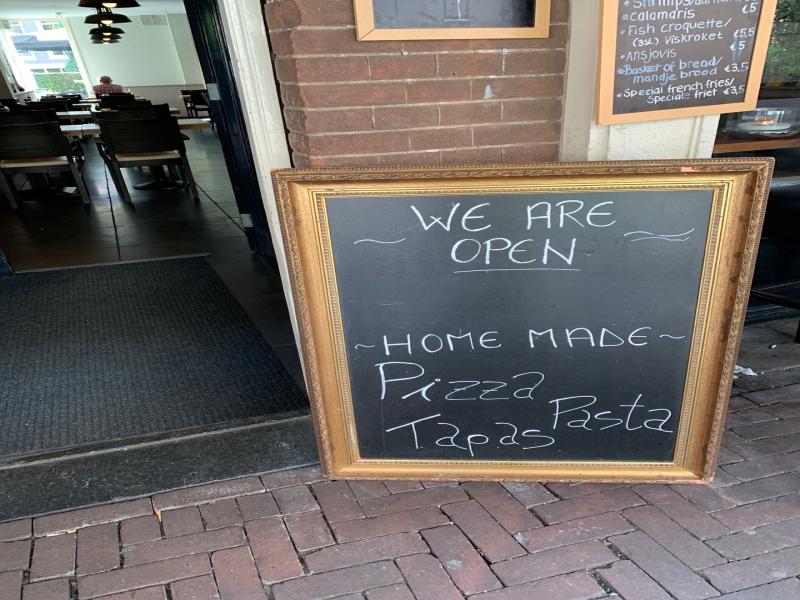 calamaris €5
*Fish croquette/
(3st.) Viskroket €5,5
*Ansjovis €5
*Basket of bread/
mandje brood €3,5
*Special french fries/
Speciale friet €3,5
WE ARE
~ OPEN ~
~HOME MADE~
Pizza
Pasta
Tapas